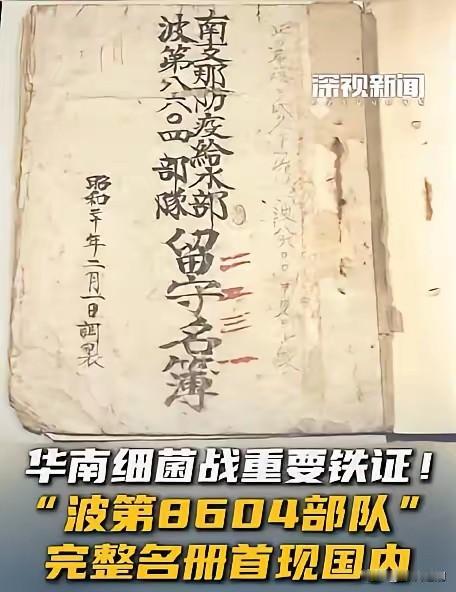 深视新闻
南支那防疫給水部
波第八六〇四部隊
留守名簿
二五三一
昭和二十年二月一日調製
华南细菌战重要铁证！
“波第8604部队”
完整名册首现国内